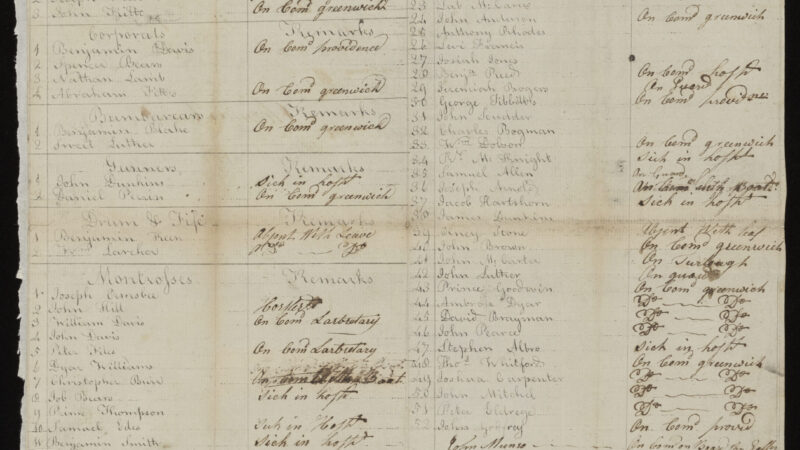 3 John Fitts On Comd greenwich
Corporals Remarks
1 Benjamin Lewis On Comd providence
2 Spencer Bears
3 Nathan Lamb
4 Abraham Fitts On Comd greenwich
Bumbarears Remarks
1 Benjamin Blake On Comd greenwich
2 Sweet Luther
Gunners Remarks
1 John Dunkins Sick in hospt
2 Daniel Pearce On Comd greenwich
Drum & Fife Remarks
1 Benjamin Keen Absent With Leave
2 Larcher Do Do
Montrosses Remarks
1 Joseph Ormsbe
2 John Hill
3 William Davis On Comd Larbretary
4 John Davis
5 Peter Files On Comd Larbretary
6 Dyar Williams
7 Christopher Burr
8 Job Bears Sick in hospt
9 Prime Thompson
10 Samuel Edes Sick in Hospt
11 Benjamin Smith Sick in hospt
23
24 John Anderson On Comd greenwich
25 Anthony Rhodes
26 Levi Francis
27 Josiah Jones
28 Benjn Reed On Comd hospt
29 Jeremiah Rogers On Guard
30 George Tibbitts On Comd provid
31 John Scudder
32 Charles Bogman
33 Wm Dolson On Comd greenwich
34 McKnight Sick in hospt
35 Samuel Allen On Guard
36 Joseph Arnold
37 Jacob Hartshorn Sick in hospt
38 James Lumkins
39 Oliney Stone Absent With
40 John Brown On Comd greenwich
41 John McCarter On Furlough
42 John Luther On guard
43 Prince Goodwin On Comd greenwich
44 Ambrose Dyar Do Do
45 David Brayman Do Do
46 John Pearce Do Do
47 Stephen Albro Sick in hospt
48 Thos Whitford On Comd greenwich
49 Joshua Carpenter Do Do
50 John Mitchel Do Do
51 Peter Eldrege Do Do
52 John Godfray On Comd provid
John Munro On Comd on Board the